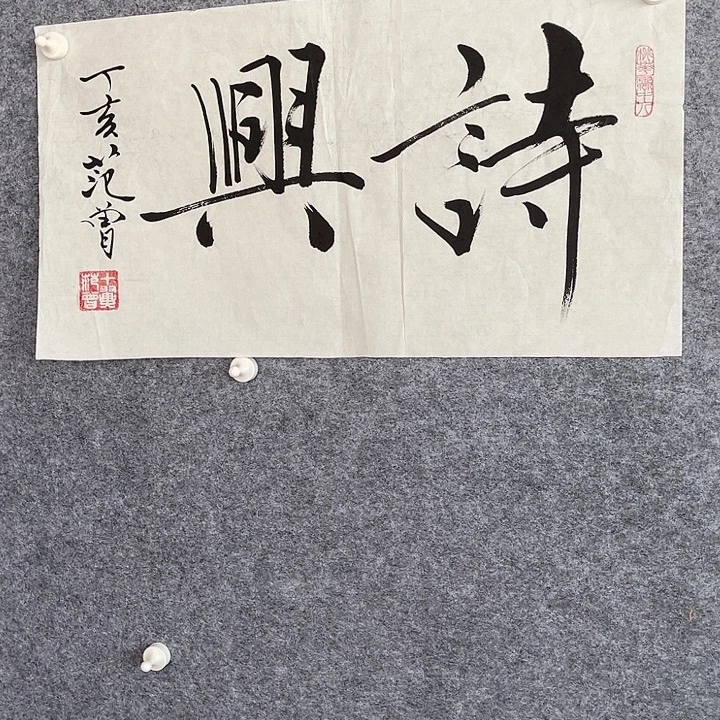 詩興
丁亥范曾